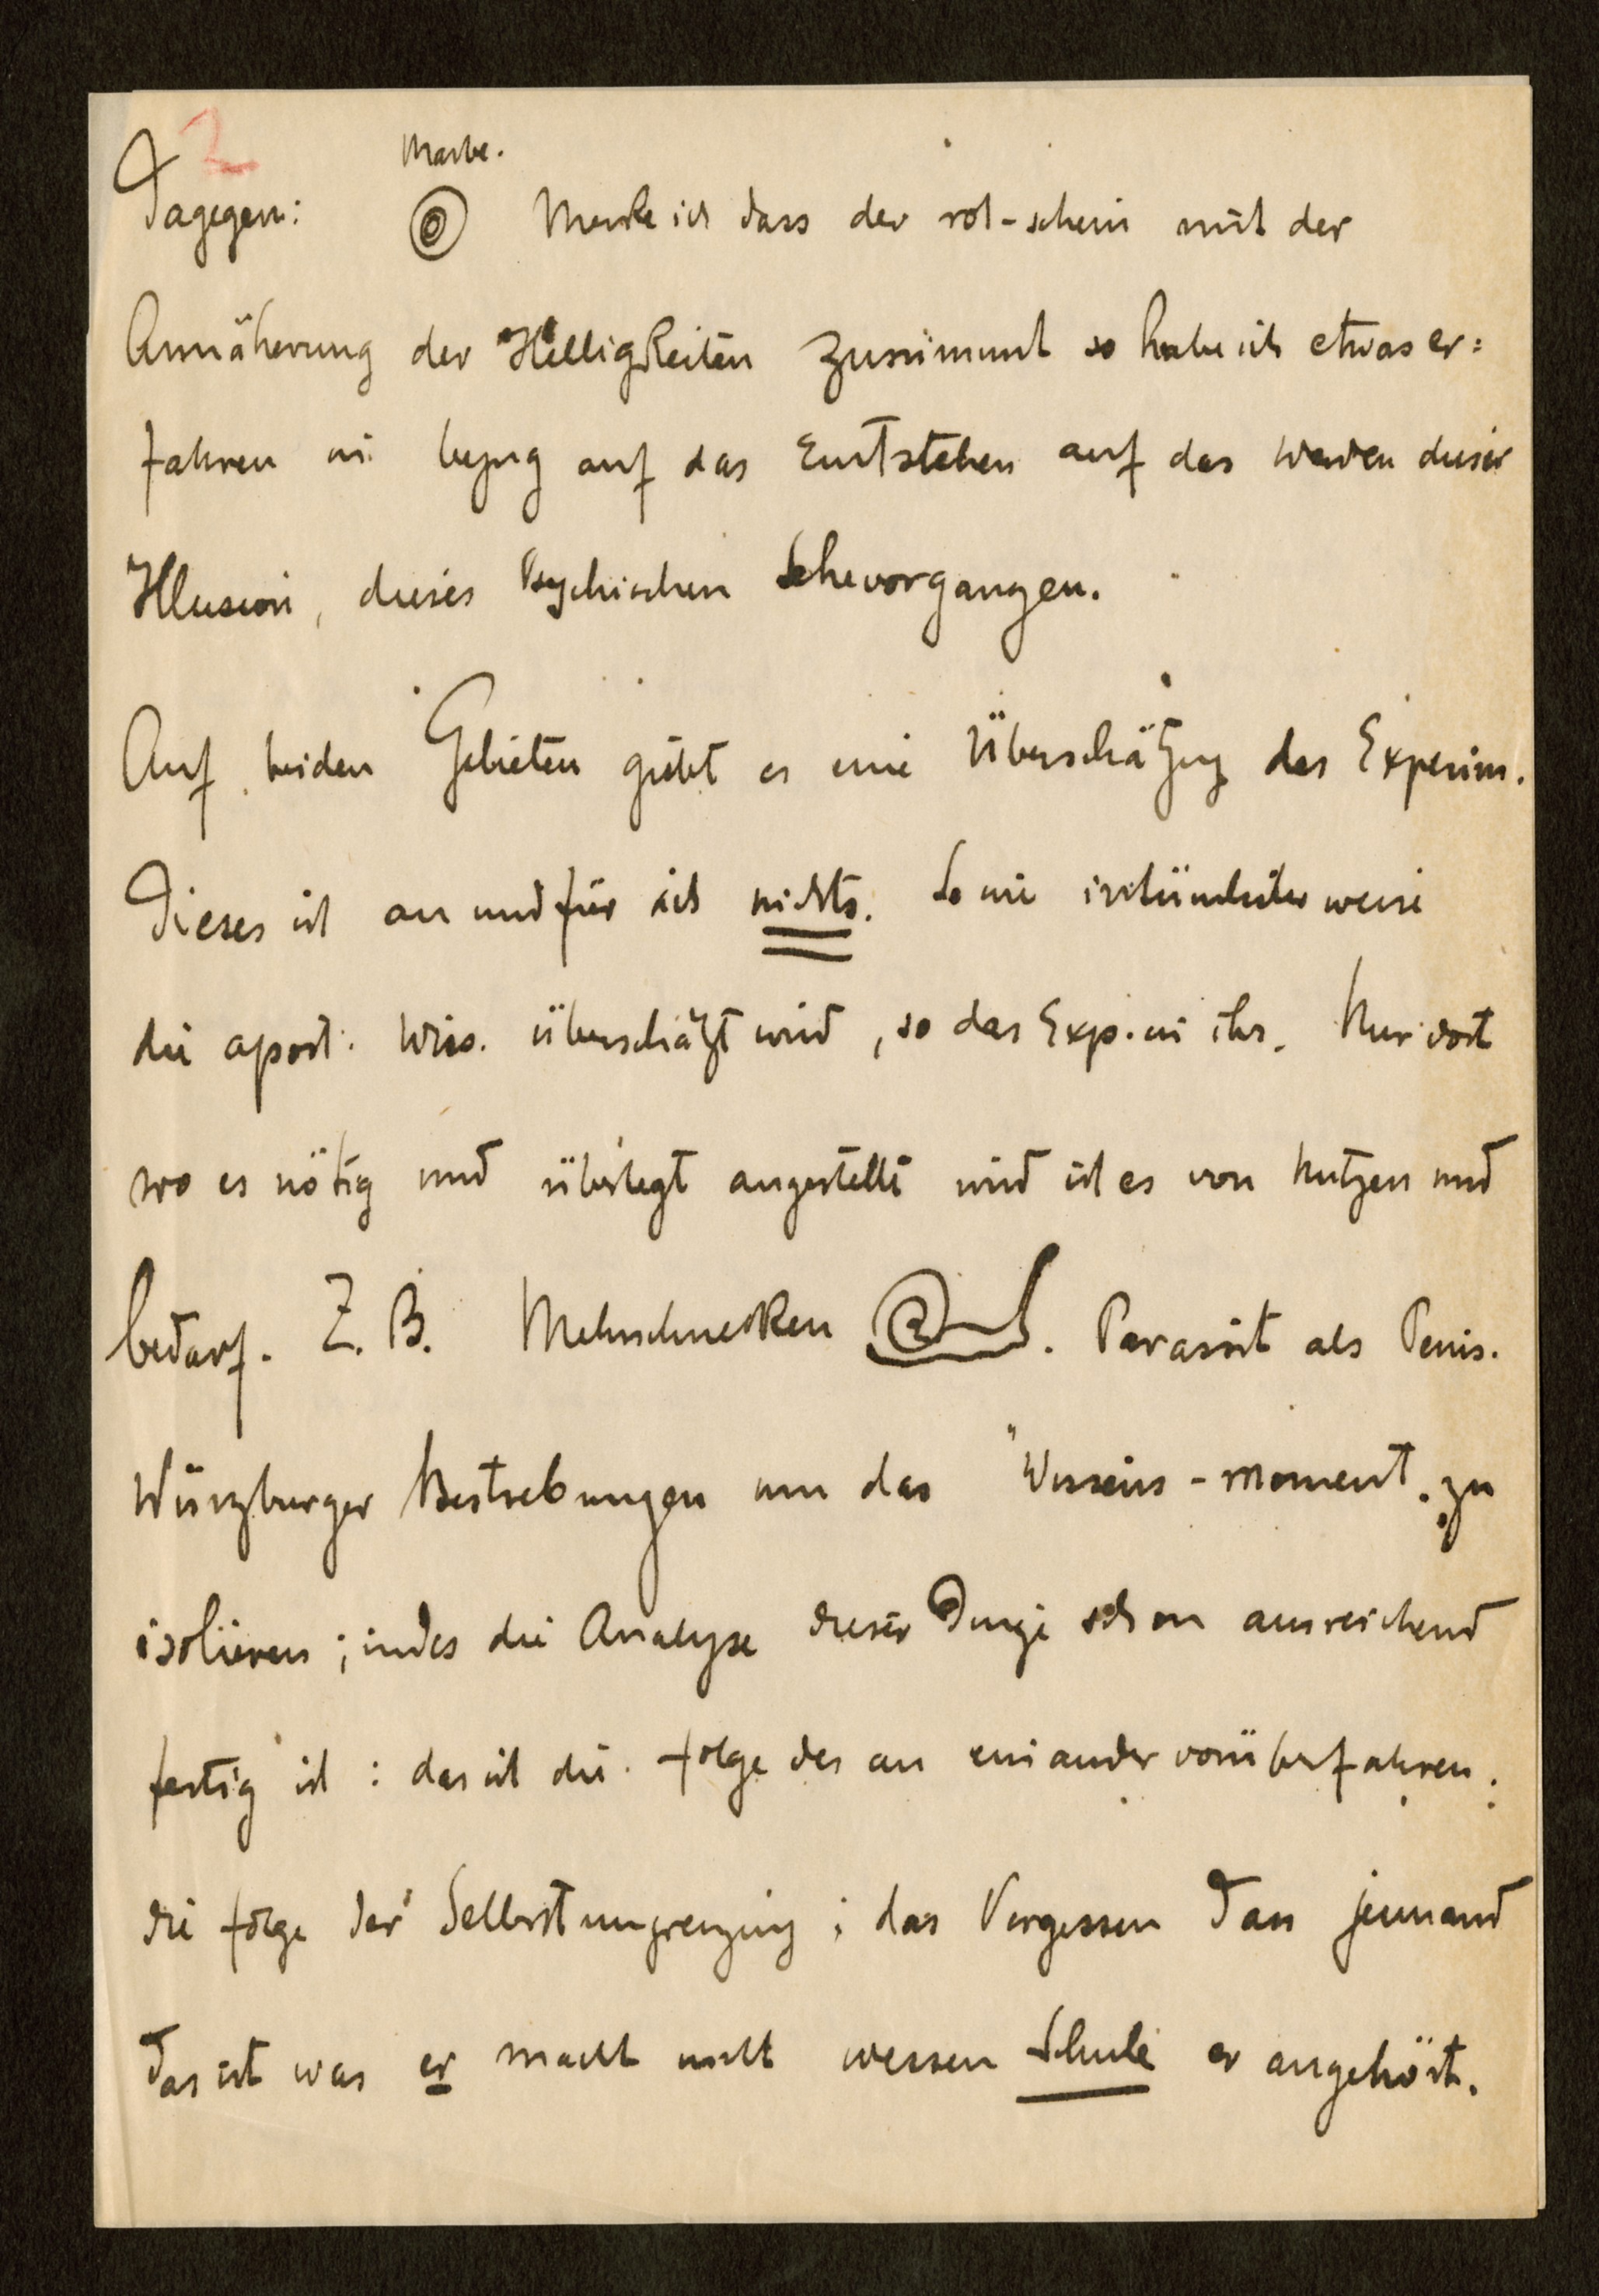 2
Marbe.
Dagegen: Merke ich dass der rot-schein mit der
Annäherung der Helligkeiten zunimmt so habe ich etwas er=
fahren in bezug auf das Entstehen auf das werden dieser
Illusion, dieses Psychischen Sehevorgangen.
Auf beiden Gebieten giebt es eine Überschätzung des Experim.
Dieses ist an und für sich nichts. So wie irrtümlicherweise
die apost. Wiss. überschätzt wird, so das Exp. in ihr. Nur dort
wo es nötig und überlegt angestellt wird ist es von Nutzen und
bedarf. Z. B. . Parasit als Penis.
Würzburger Bestrebungen um das "Wisseins-moment. zu
isolieren; indes die Analyse dieser Dinge schon ausreichend
fertig ist : das ist die folge des an einander vorüberfahren:
die folge der Selbstumgrenzung; das Vergessen dass jemand
das ist was er macht nicht wessen Schule er angehört.